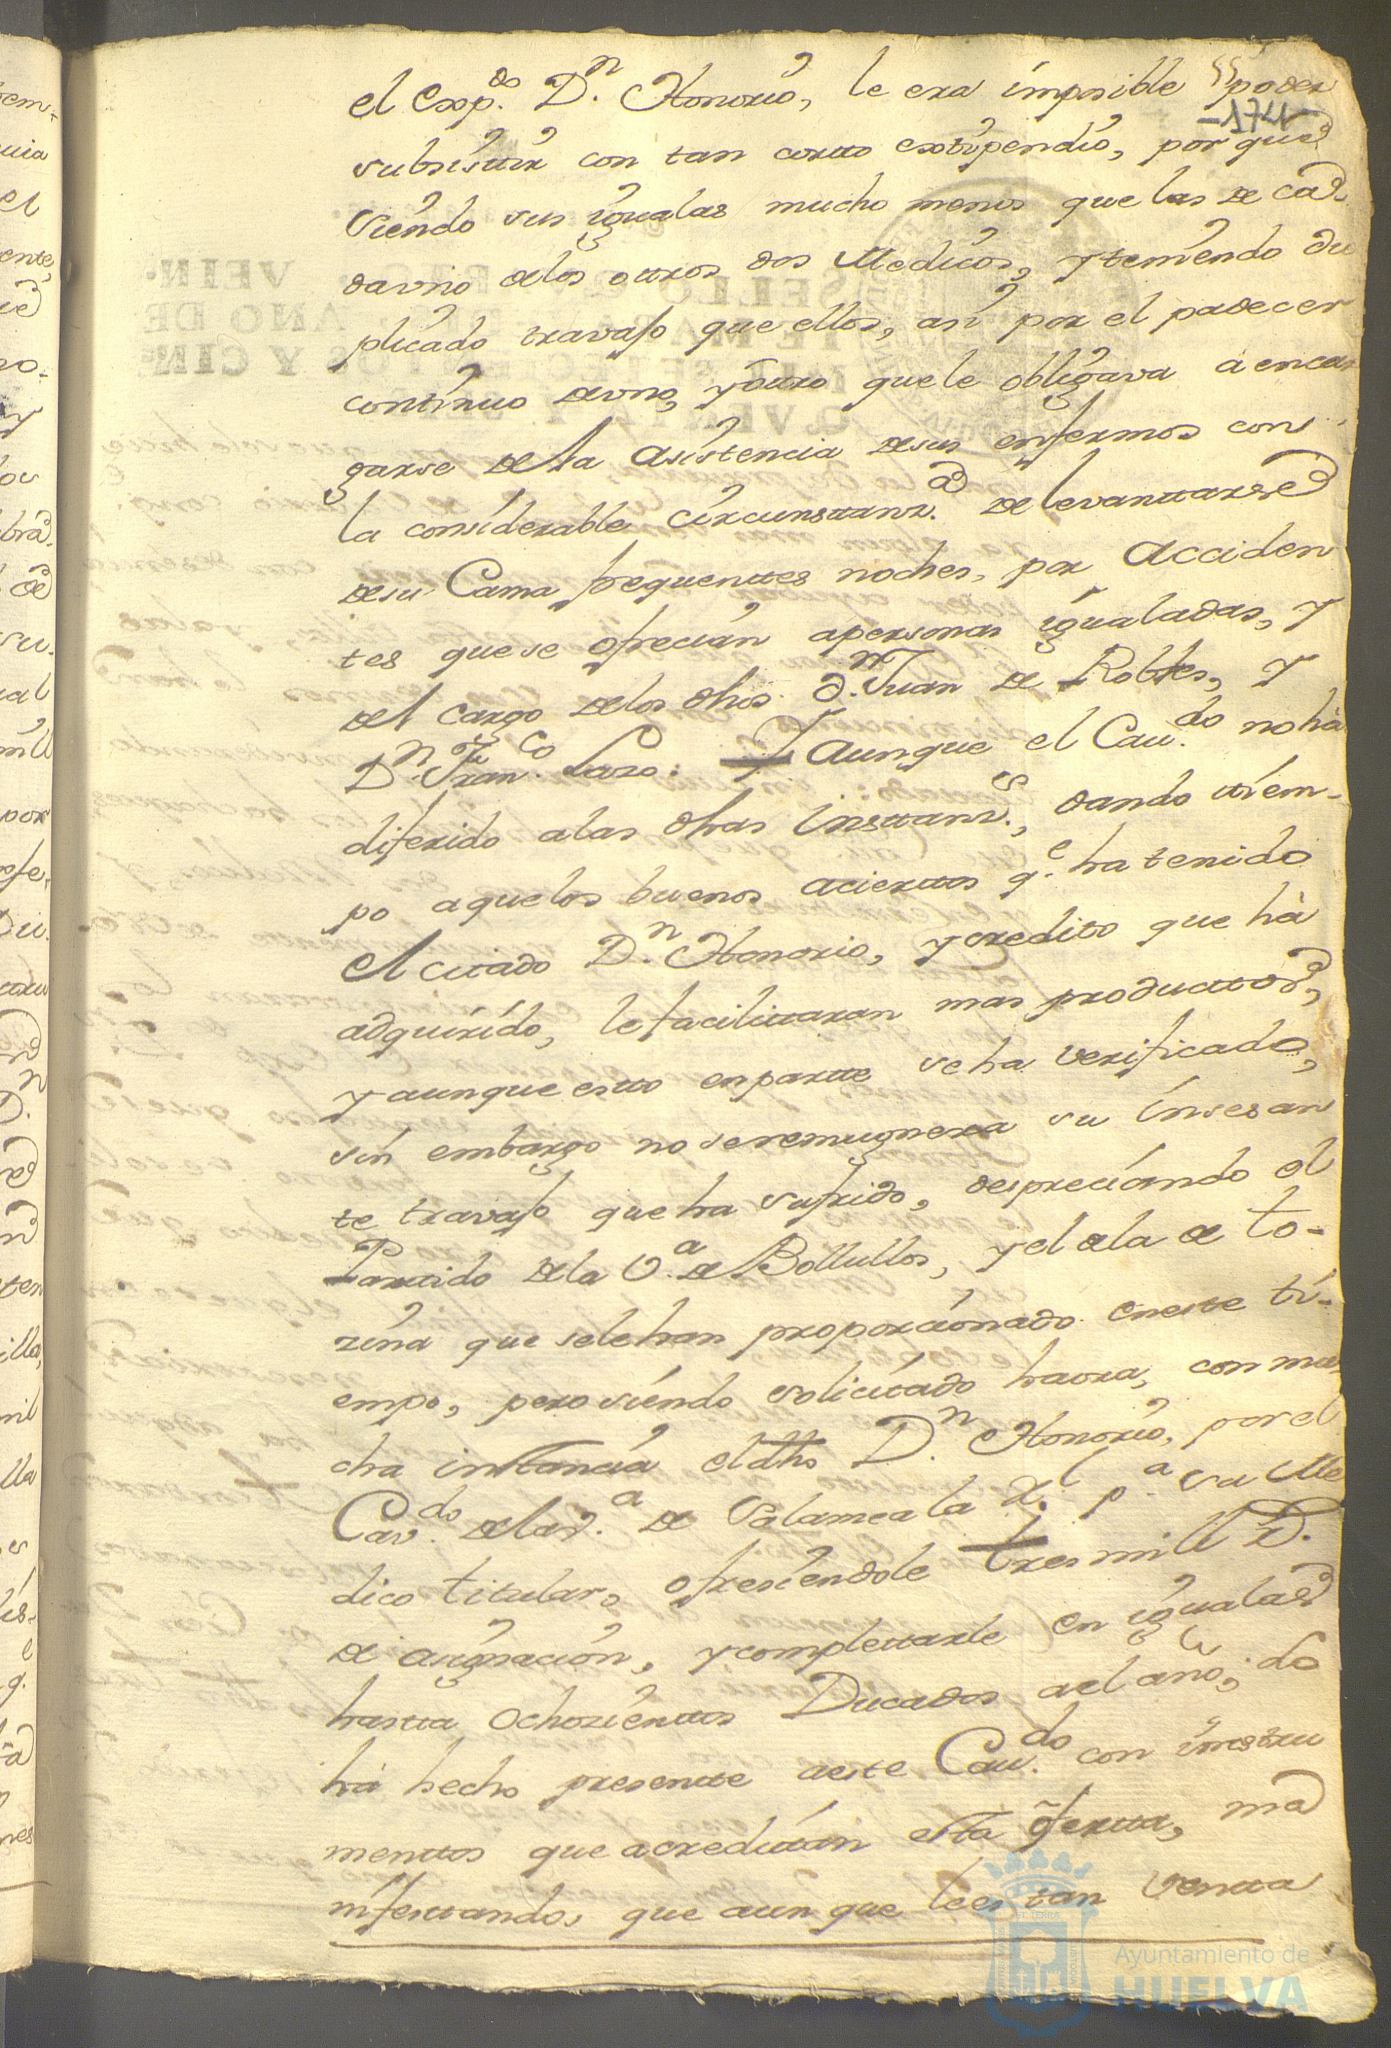 el Exp.do D.n Honorio, le era imposible poder
-174-
subsistir con tan cortto extipendio, por que
siendo sus igualas mucho menos que las de ca-
da vno de los ottros dos Medicos, y teniendo du
plicado travajo que ellos, asi por el padecer
continuo de vno, y ottro que le obligava a encar
garse de la asistencia de sus enfermos con
la considerable circunsttanz.a de levanttarse
de su Cama frequenttes noches, por acciden
tes que se ofrecian a personas igualadas, y
del cargo de los dhos D.n Juan de Robles, y
D.n Fran.co Lazo. Y aunque el Cau.do no ha
diferido a las dhas insttanz.s, dando tiem-
po a que los buenos acierttos q.e ha tenido
el cittado D.n Honorio, y credito que hà
adquirido, le facilittaran mas producttos,
y aunque estto en partte se ha verificado,
sin embargo no se remugnera su insesan
te travajo que ha sufrido, despreciando el
Partido de la V.a de Bollullos, y el de la de to-
zina que se le han proporcionado en este ti-
empo, pero siendo solicitado haora, con mu
cha instancia el dho D.n Honorio, por el
Cav.do de la V.a de Salamea la R.l p.a su Me
dico titular, ofresiendole tres mill R.
de asignacion, y complettarle en igualas
hastta ochozienttos Ducados al año; lo
hà hecho presentte a este Cau.do con instru
menttos que acreditan esta ofertta, ma
nifesttando, que aunque le es tan ventta
Ayuntamiento de
HUELVA